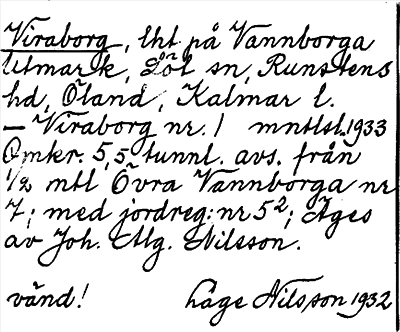 Viraborg, lht på Vannborga
utmark, Löt sn, Runstens
hd, Öland, Kalmar l.
– Viraborg nr. 1 mntlsl. 1933
Omkr. 5,5 tunnl. avs. från
1/2 mtl Övra Vannborga nr
7; med jordreg: nr 5²; Äges
av Joh. Alg. Nilsson.
vänd! Låge Nilsson 1932